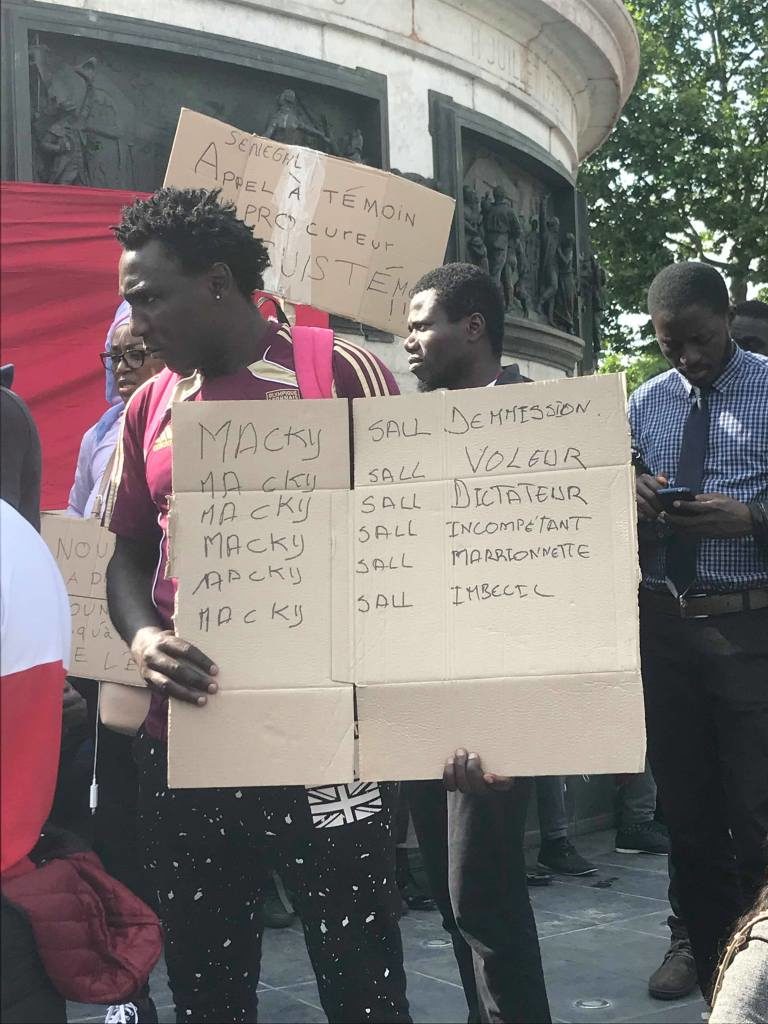 SENEGAL
APPEL À TÉMOIN
PROCUREUR
!!
MACKY SALL DEMMISSION.
MACKY SALL VOLEUR
MACKY SALL DICTATEUR
MACKY SALL INCOMPÉTANT
MACKY SALL MARRIONNETTE
MACKY SALL IMBECIL
NOU